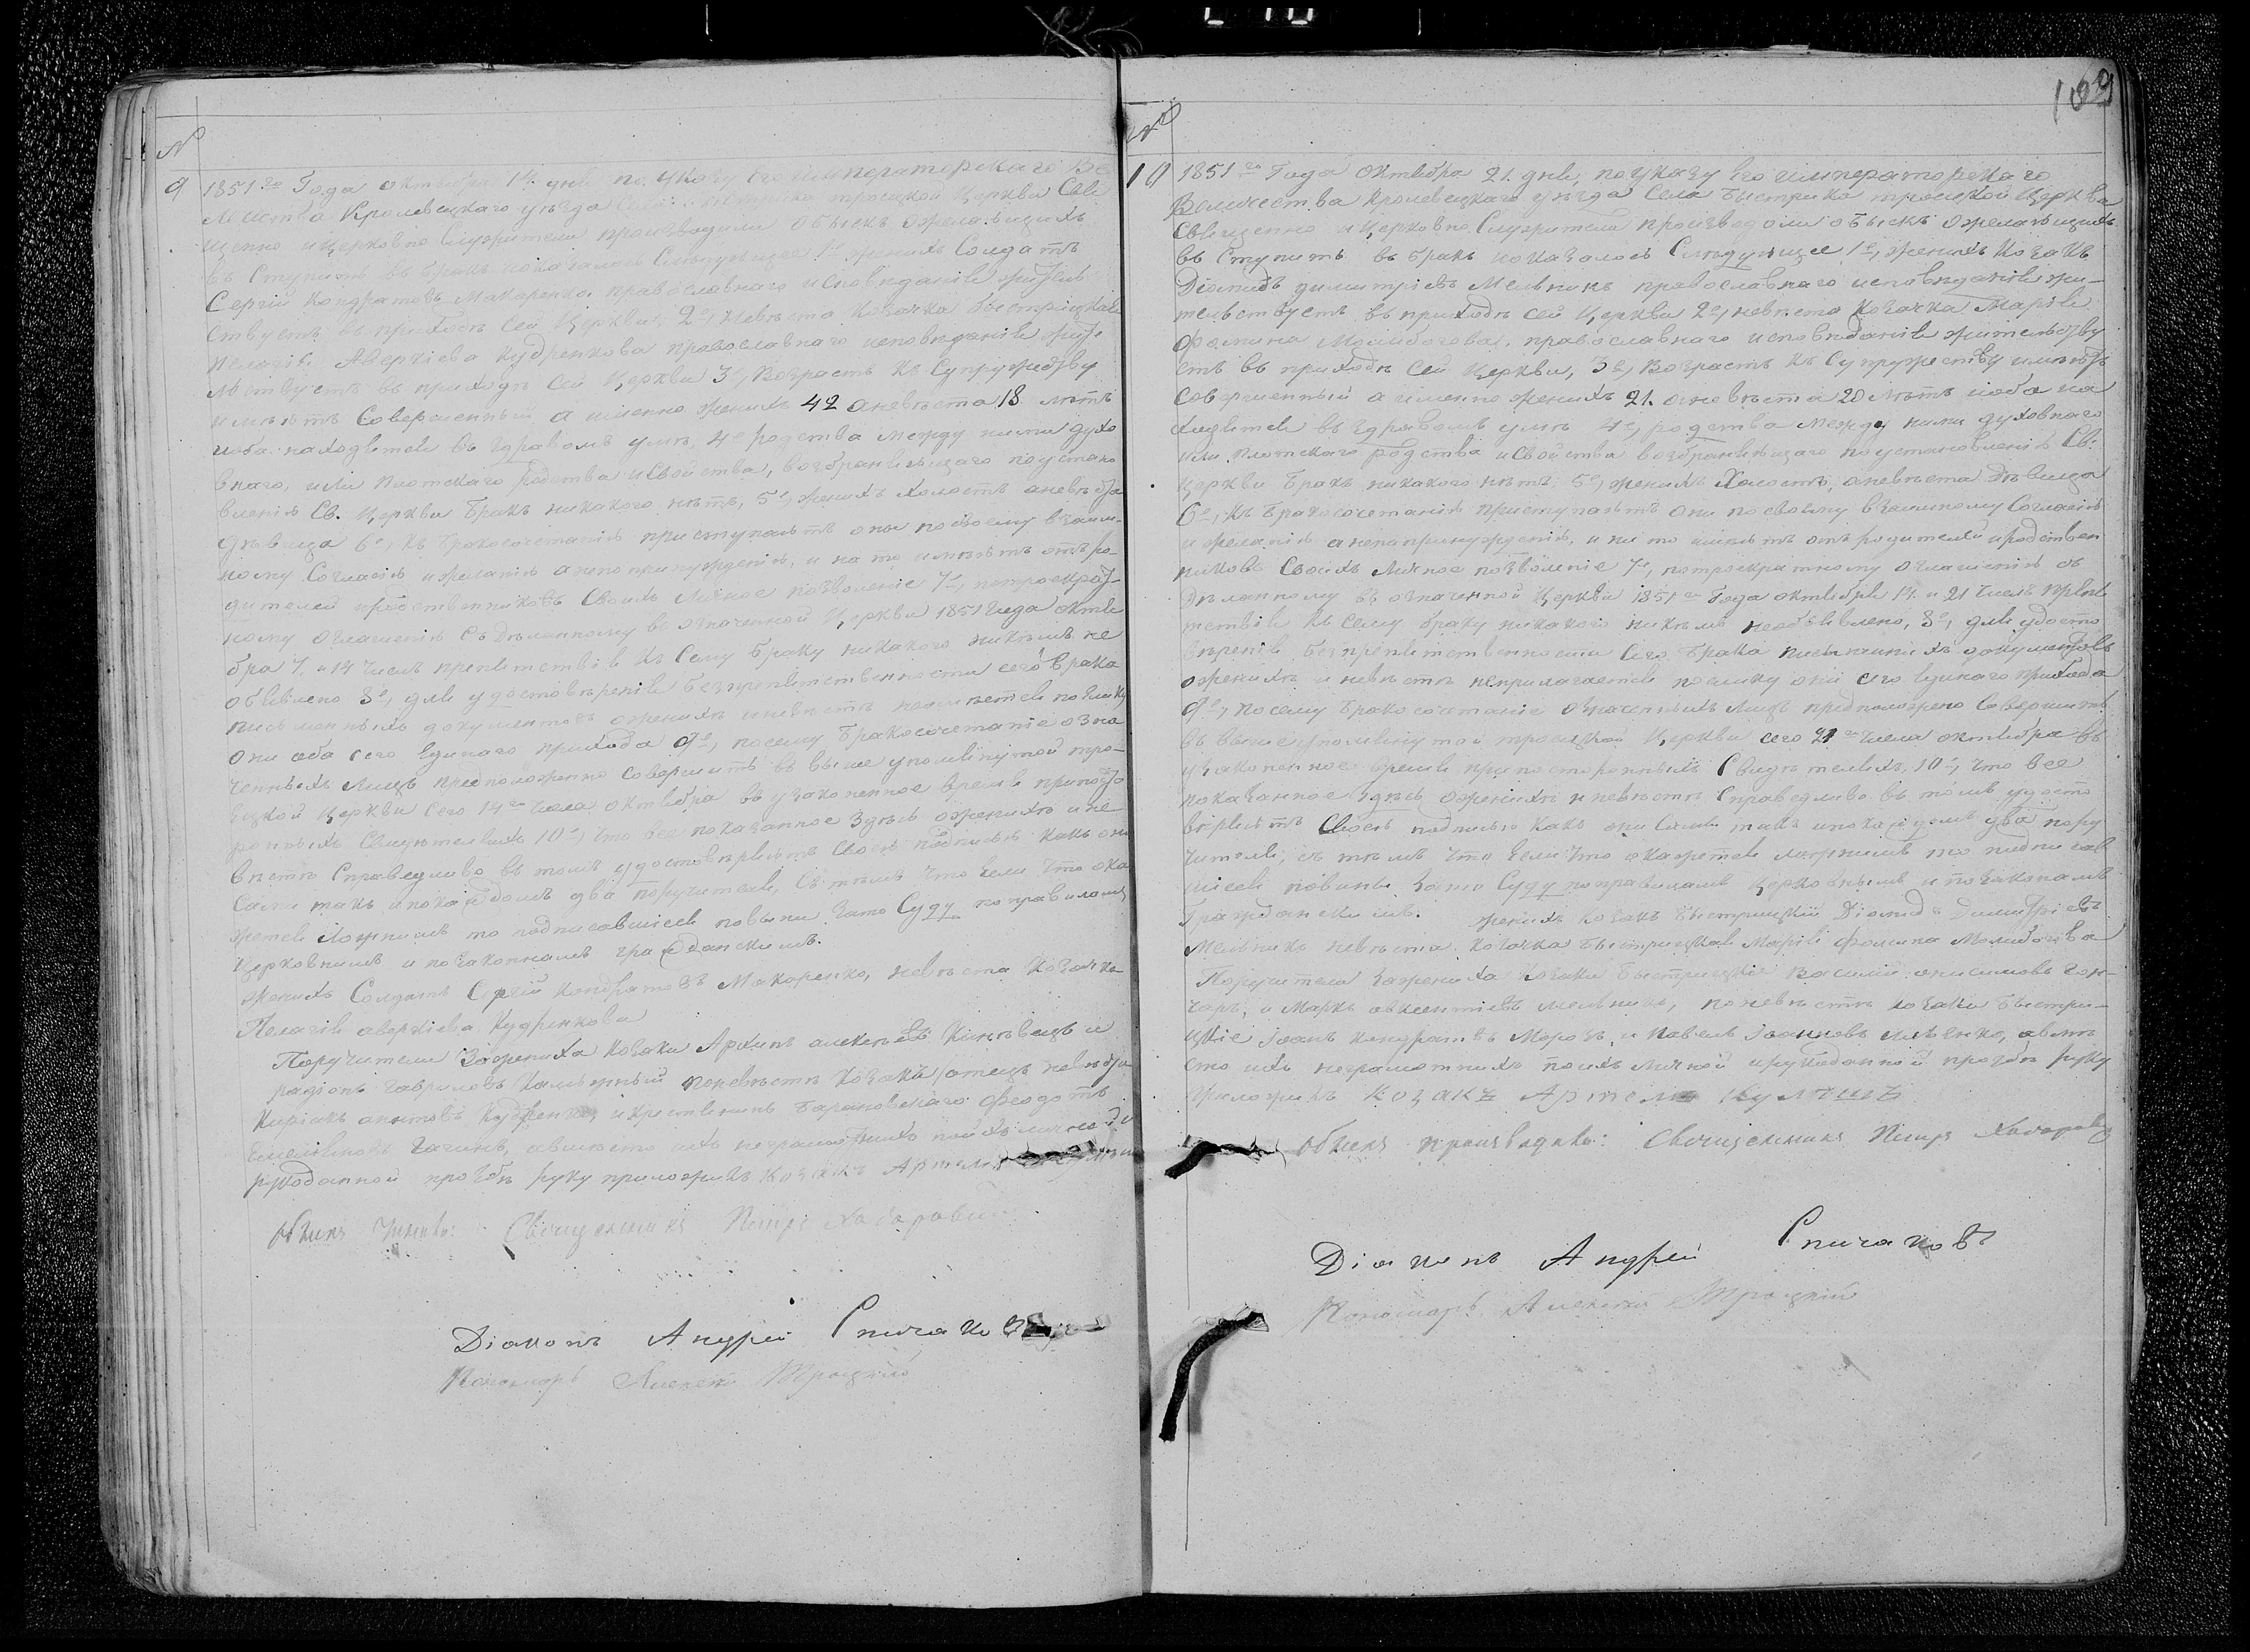 №
9 1851го Года октября 14. дня по указу Его императорскаго Ве
личества Кролевецкаго уѣзда Села троецкой Церкви Свя
щенно и церковно Служители производили обыскъ ожелающихъ
въ Ступить въ бракъ показалось Слѣдующее 1е женихъ Солдатъ
Сергій Кондратовъ Макаренко, православнаго исповѣданія жител
ствуетъ въ приходѣ сей Церкви, 2е, невѣста козачка быстрицкая
Пелагія Аверкіева Кудренкова православнаго исповѣданія жите
лствуетъ въ приходѣ сей Церкви 3е, Возрастъ къ Супружеству
имѣютъ Совершенный а именно женихъ 42 аневѣста 18 лѣтъ
иоба находятся въ здравомъ умѣ, 4е родства между ними духо
внаго, или плотскаго родства иСвойства, возбраняющаго поустано
вленію Св. Церкви бракъ никакого нѣтъ, 5е, женихъ холостъ аневѣста
дѣвица 6е, къ бракосочетанію приступаютъ они посвоему взаим-
ному Согласію ижеланію анепопринужденію, и на то имѣютъ отъ ро-
дителей иродственниковъ Своихъ личное позволеніе 7е, потроекрат-
ному оглашенію Сдѣланному въ означенной Церкви 1851 года октя
бра 7. и 14 чиселъ препятствія къ Сему браку никакого никѣмъ не
объявлено 8е, для удостовѣренія безпрепятственности сего брака
письменныхъ документовъ оженихѣ иневѣстѣ неимѣется поелику
они оба сего единаго прихода 9е, посему бракосочетаніе озна
ченныхъ лицъ предположенно совершить въ выше упомянутой тро-
ецкой Церкви Сего 14го числа октября въ узаконенное время припосто
ронныхъ Свидѣтеляхъ 10е, что все показанное здѣсь оженихѣ и не
вѣстѣ Справедливо въ томъ удостовѣряютъ Своею подписью какъ они
Сами такъ ипокаждомъ два поручителя, Стѣмъ что если что ока
жется ложнымъ то подписавшіеся повыны зато Суду поправиламъ
Церковнымъ и позаконнамъ гражданскимъ.
женихъ Солдатъ Сергій Кондратовъ Макаренко, невѣста козачка
Пелагія аверкіева Кудренкова
Поручители Зажениха козаки Архипъ алексѣевъ и
гавриловъ поневѣстѣ козакъ отецъ невѣсты
икрестянинъ барановскаго Феодотъ
авмѣсто ихъ неграмотныхъ поихъ личной
рукоданной прозбѣ руку приложилъ козакъ Артемъ
обыскъ Чинилъ: Священникъ Петръ
Діаконъ Андрей Спичаковъ
Пономарь Алексѣй Троцкій
169
№
10 1851го Года октября 21. дня, поуказу Его императорскаго
Величества Кролевецкаго уѣзда Села быстрика троецкой Церкви
Священно и церковно Служители производили обыскъ ожелающихъ
въ Ступить въ бракъ показалось Слѣдующее 1е, женихъ козакъ
Діомидъ димитріевъ Мельникъ православнаго исповѣданія жи-
тельствуетъ въ приходѣ сей Церкви 2е, невѣста козачка Марія
Фомина православнаго исповѣданія жительству
етъ въ приходѣ сей Церкви, 3е, Возрастъ къ Супружеству имѣютъ
Совершенный а именно женихъ 21. аневѣста 20 лѣтъ иоба на
ходятся въ здравомъ умѣ 4е, родства между ними духовнаго
или плотскаго родства иСвойства возбраняющаго поустановленію Св.
Церкви бракъ никакого нѣтъ. 5е, женихъ Холостъ, аневѣста дѣвица
6е, къ бракосочетанію приступаютъ они посвоему взаимному Согласію
и желанію анепопринужденію, и на то имѣютъ отъ родителей иродствен
никовъ Своихъ личное позволеніе 7е, потроекратному оглашенію съ
дѣланному въ означенной Церкви 1851го Года октября 14. и 21 чиселъ препя
тствія къ Сему браку никакого никѣмъ необъявлено, 8е, для удосто
вѣренія безпрепятственности Сего брака письменныхъ документовъ
оженихѣ и невѣстѣ неприлагается поелику они сего единаго прихода
9е, посему бракосочетаніе означенныхъ лицъ предположено Совершить
въ вышеупомянутой троецкой Церкви сего 21го числа октября въ
узаконенное время припосторонныхъ Свидѣтеляхъ, 10е, что все
показанное здѣсь оженихѣ иневѣстѣ Справедливо въ томъ удосто
вѣряютъ Своею подписью какъ они Сами такъ ипокаждомъ два пору
чителя, съ тѣмъ что если что окажется ложнымъ то подписав
шіеся повинны зато Суду поправиламъ Церковнымъ и позаконамъ
Гражданскимъ. женихъ козакъ быстрицкій Діомидъ Димитріевъ
Мельникъ невѣста козачка быстрицкая Марія Фомина
Поручители заженихa козаки быстрицкіе василій онисимовъ гон-
чаръ, и Маркъ авксентіевъ мельникъ, поневѣстѣ козаки быстри-
цкіе Іоанъ кондратовъ Морозъ, и Павелъ Іоанновъ авмѣ
сто ихъ неграмотныхъ поихъ личной ирукоданной прозбѣ руку
приложилъ козакъ Артемъ
обыскъ производилъ: Священникъ Петръ
Діаконъ Андрей Спичаковъ
Пономарь Алексѣй Троцкій